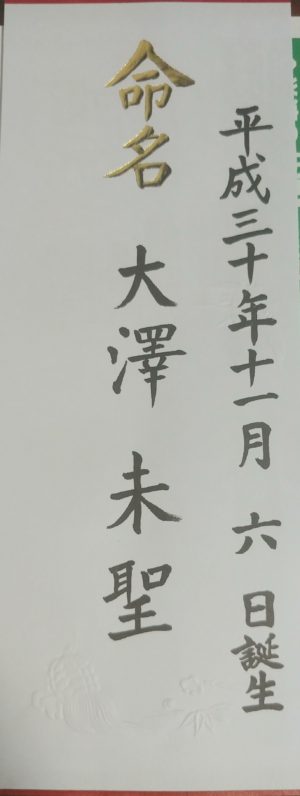 平成三十年十一月 六 日誕生
命名 大澤 未聖